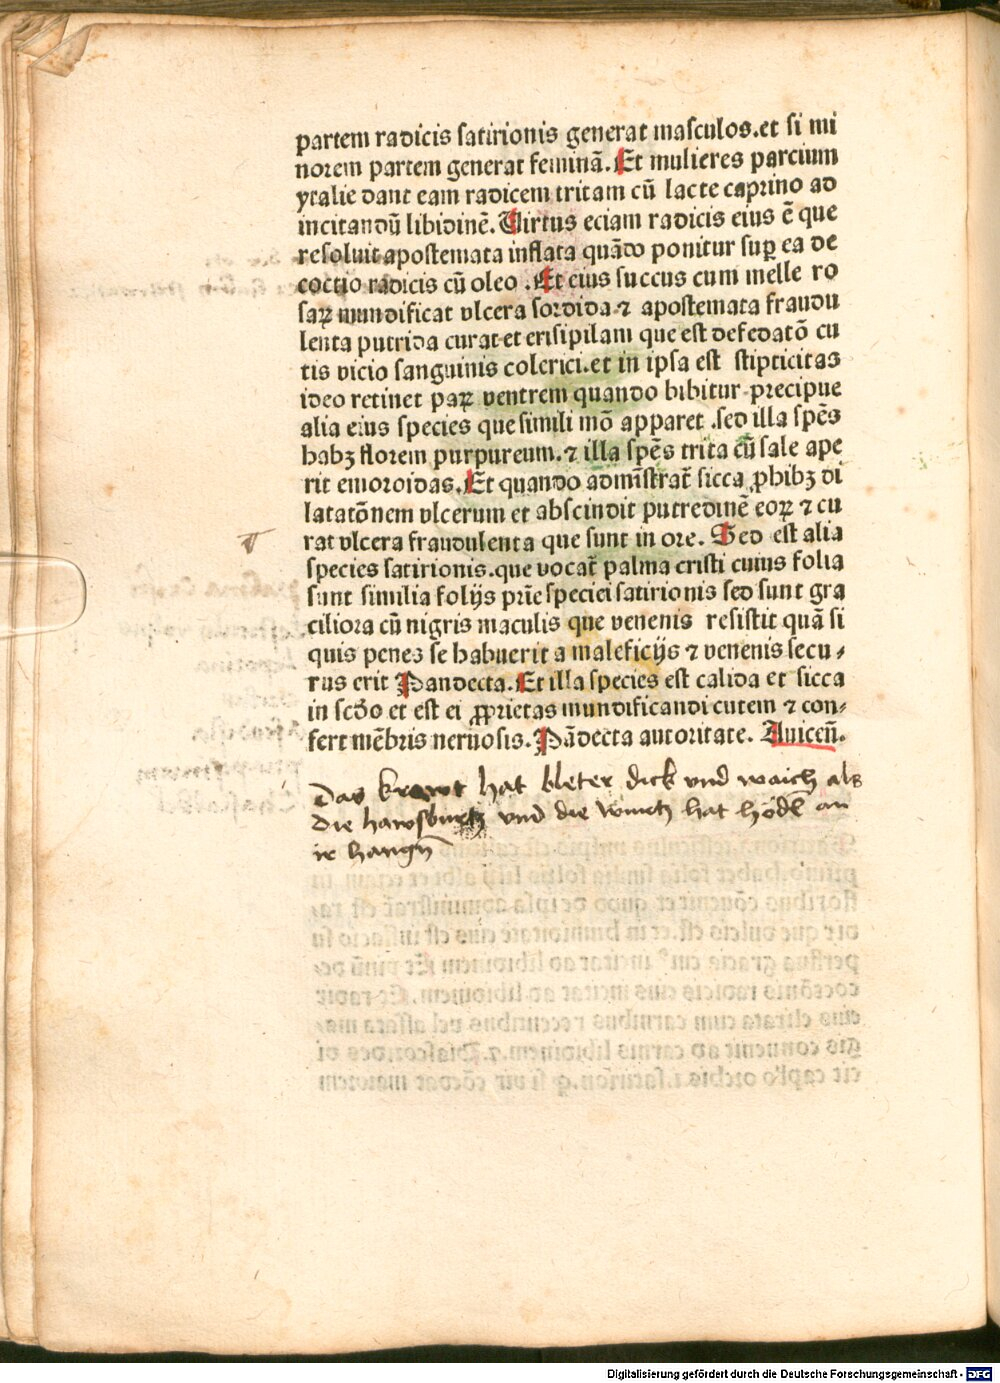 partem radicis satirionis generat masculos.et si mi
norem partem generat feminā. Et mulieres parcium
ytalie dant eam radicem tritam cū lacte caprino ad
incitandū libidinē. Uirtus eciam radicis eius ē que
resoluit apostemata inflata quādo ponitur suꝑ ea de
coctio radicis cū oleo .Et eius succus cum melle ro
saꝝ mundificat vlcera sordida ⁊ apostemata fraudu
lenta putrida curat et erisipilam que est defedatō cu
tis vicio sanguinis colerici.et in ipsa est stipticitas
ideo retinet paꝝ ventrem quando bibitur precipue
alia eius species que simili mō apparet .sed illa spēs
habꝫ florem purpureum. ⁊ illa spēs trita cū sale ape
rit emoroidas. Et quando admīstrat̄ sicca ꝓhibꝫ di
latatōnem vlcerum et abscindit putredinē eoꝝ ⁊ cu
rat vlcera fraudulenta que sunt in ore. Sed est alia
species satirionis.que vocat̄ palma cristi cuius folia
sunt similia folijs prīe speciei satirionis sed sunt gra
ciliora cū nigris maculis que venenis resistit quā si
quis penes se habuerit a maleficijs ⁊ venenis secu⸗
rus erit Pandecta. Et illa species est calida et sicca
in scd̄o et est ei ꝓprietas mundificandi cutem ⁊ con⸗
fert mēbris neruosis. Pādecta autoritate. Auiceñ.
Das krawt hat bleter dick vnd waich als
die hawsburtz vnd die wurtz hat hödē an
ir hangn̄